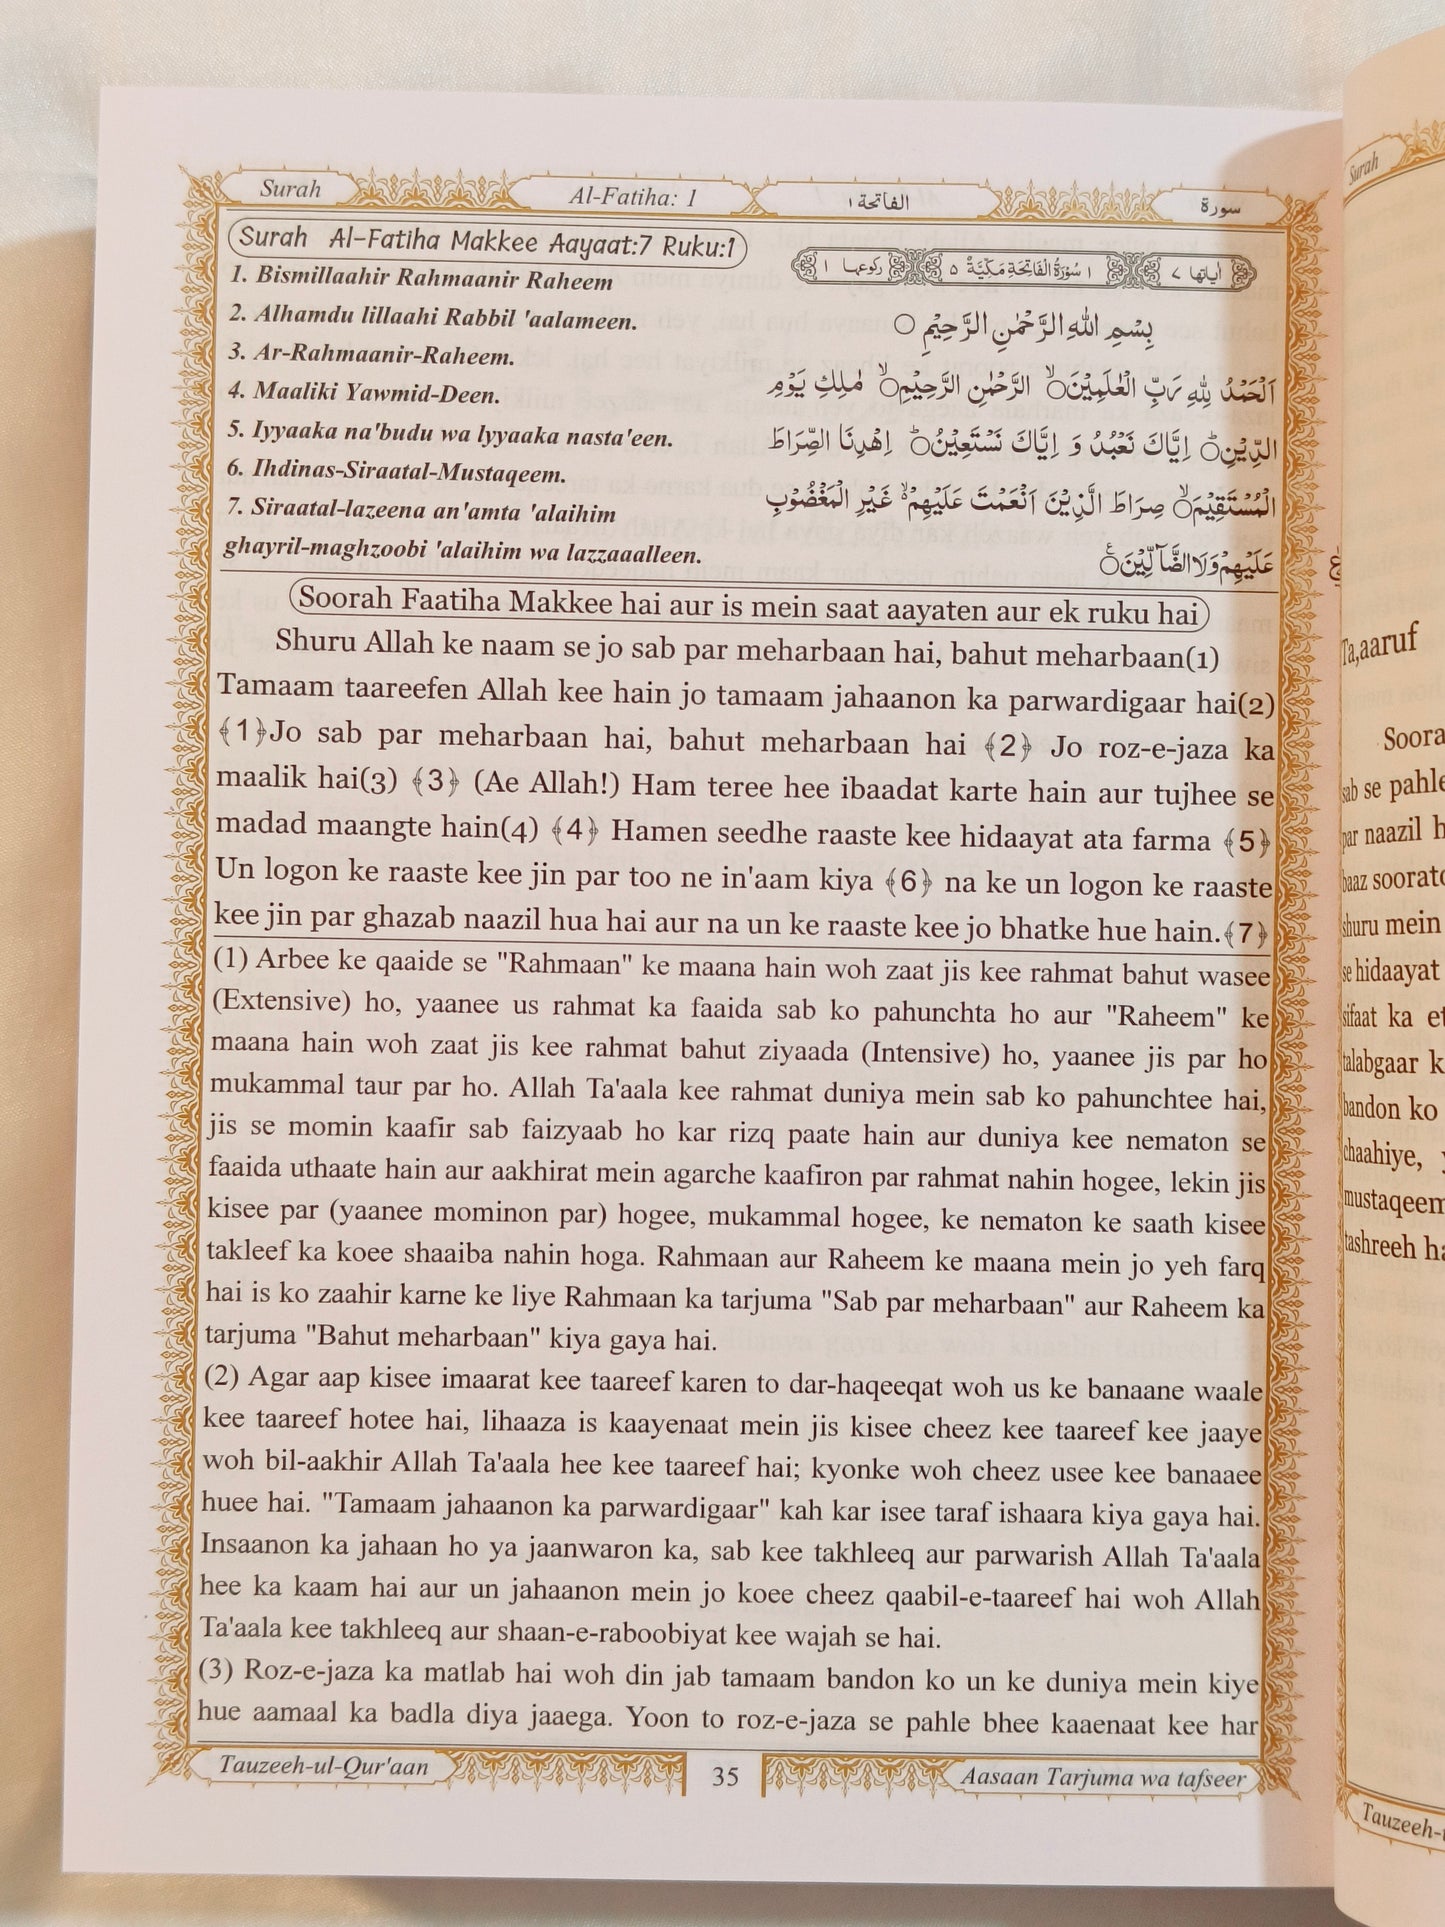 Surah
Al-Fatiha: 1
الفاتحة ١
سورة
Surah Al-Fatiha Makkee Aayaat:7 Ruku:1
1. Bismillaahir Rahmaanir Raheem
2. Alhamdu lillaahi Rabbil 'aalameen.
3. Ar-Rahmaanir-Raheem.
4. Maaliki Yawmid-Deen.
5. Iyyaaka na'budu wa lyyaaka nasta'een.
6. Ihdinas-Siraatal-Mustaqeem.
7. Siraatal-lazeena an'amta 'alaihim
ghayril-maghzoobi 'alaihim wa lazzaaalleen.
اٰیاتها ٧
١ سُوْرَةُ الْفَاتِحَةِ مَكِّيَّةٌ ٥
رکوعها ١
بِسْمِ اللهِ الرَّحْمٰنِ الرَّحِيْمِ ○
اَلْحَمْدُ لِلّٰهِ رَبِّ الْعٰلَمِيْنَ○ۙ الرَّحْمٰنِ الرَّحِيْمِ○ۙ مٰلِكِ يَوْمِ
الدِّيْنِ○ؕ اِيَّاكَ نَعْبُدُ وَ اِيَّاكَ نَسْتَعِيْنُ○ؕ اِهْدِنَا الصِّرَاطَ
الْمُسْتَقِيْمَ○ۙ صِرَاطَ الَّذِيْنَ اَنْعَمْتَ عَلَيْهِمْ○ۙ غَيْرِ الْمَغْضُوْبِ
عَلَيْهِمْ وَلَا الضَّآلِّيْنَ○
Soorah Faatiha Makkee hai aur is mein saat aayaten aur ek ruku hai
Shuru Allah ke naam se jo sab par meharbaan hai, bahut meharbaan(1)
Tamaam taareefen Allah kee hain jo tamaam jahaanon ka parwardigaar hai(2)
﴾1﴿Jo sab par meharbaan hai, bahut meharbaan hai ﴾2﴿ Jo roz-e-jaza ka
maalik hai(3) ﴾3﴿ (Ae Allah!) Ham teree hee ibaadat karte hain aur tujhee se
madad maangte hain(4) ﴾4﴿ Hamen seedhe raaste kee hidaayat ata farma ﴾5﴿
Un logon ke raaste kee jin par too ne in'aam kiya ﴾6﴿ na ke un logon ke raaste
kee jin par ghazab naazil hua hai aur na un ke raaste kee jo bhatke hue hain.﴾7﴿
(1) Arbee ke qaaide se "Rahmaan" ke maana hain woh zaat jis kee rahmat bahut wasee
(Extensive) ho, yaanee us rahmat ka faaida sab ko pahunchta ho aur "Raheem" ke
maana hain woh zaat jis kee rahmat bahut ziyaada (Intensive) ho, yaanee jis par ho
mukammal taur par ho. Allah Ta'aala kee rahmat duniya mein sab ko pahunchtee hai,
jis se momin kaafir sab faizyaab ho kar rizq paate hain aur duniya kee nematon se
faaida uthaate hain aur aakhirat mein agarche kaafiron par rahmat nahin hogee, lekin jis
kisee par (yaanee mominon par) hogee, mukammal hogee, ke nematon ke saath kisee
takleef ka koee shaaiba nahin hoga. Rahmaan aur Raheem ke maana mein jo yeh farq
hai is ko zaahir karne ke liye Rahmaan ka tarjuma "Sab par meharbaan" aur Raheem ka
tarjuma "Bahut meharbaan" kiya gaya hai.
(2) Agar aap kisee imaarat kee taareef karen to dar-haqeeqat woh us ke banaane waale
kee taareef hotee hai, lihaaza is kaayenaat mein jis kisee cheez kee taareef kee jaaye
woh bil-aakhir Allah Ta'aala hee kee taareef hai; kyonke woh cheez usee kee banaaee
huee hai. "Tamaam jahaanon ka parwardigaar" kah kar isee taraf ishaara kiya gaya hai.
Insaanon ka jahaan ho ya jaanwaron ka, sab kee takhleeq aur parwarish Allah Ta'aala
hee ka kaam hai aur un jahaanon mein jo koee cheez qaabil-e-taareef hai woh Allah
Ta'aala kee takhleeq aur shaan-e-raboobiyat kee wajah se hai.
(3) Roz-e-jaza ka matlab hai woh din jab tamaam bandon ko un ke duniya mein kiye
hue aamaal ka badla diya jaaega. Yoon to roz-e-jaza se pahle bhee kaaenaat kee har
Tauzeeh-ul-Qur'aan
35
Aasaan Tarjuma wa tafseer
Surah
Ta,aaruf
Soora
sab se pahle
par naazil h
baaz soorat
shuru mein
se hidaayat
sifaat ka et
talabgaar k
bandon ko
chaahiye,
mustaqeem
tashreeh ha
Tauzeeh-